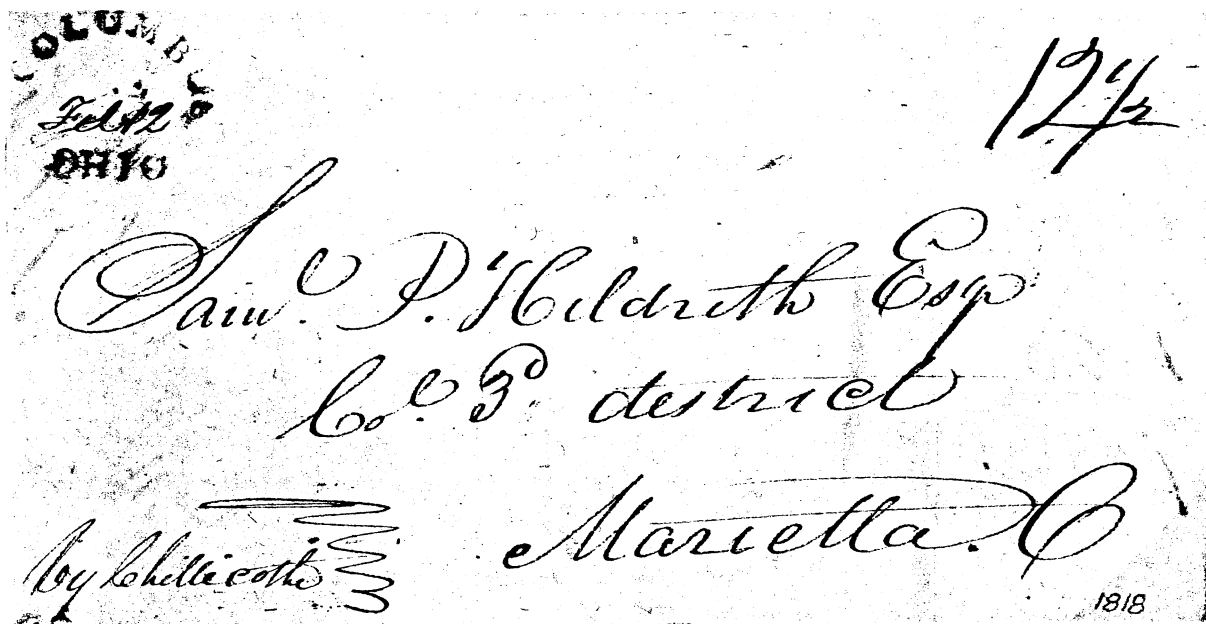 COLUMBUS
Feb 12
OHIO
12 1/2
Saml. P. Hildreth Esqr
Col. 3d. district
Marietta. O
by Chillicothe
1818